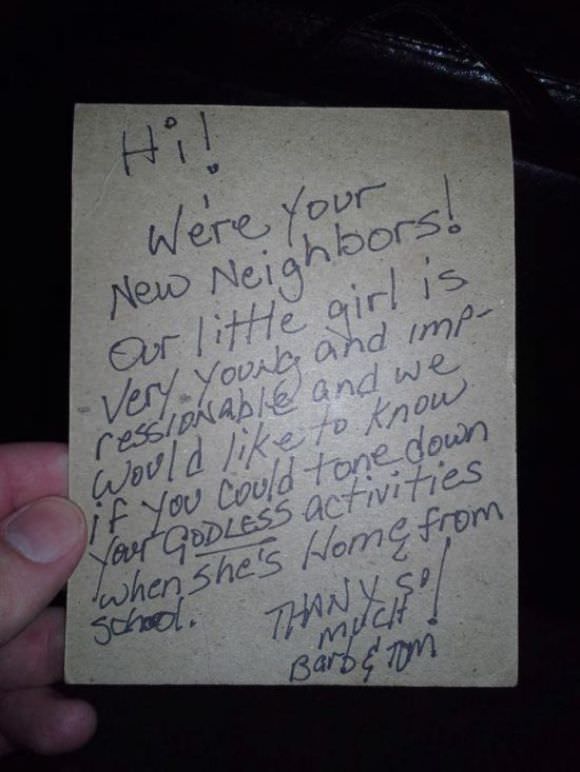 Hi!
We're Your
New Neighbors!
Our little girl is
Very Young and imp-
ressionable and we
would like to know
if you could tone down
your GODLESS activities
when she's Home from
school.
THANX SO
much!
Barb & Tom